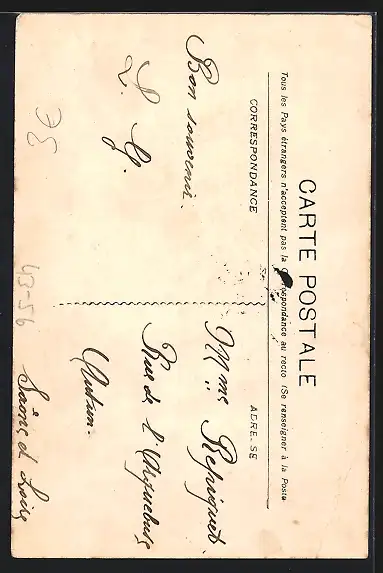 CARTE POSTALE
Tous les Pays étrangers n'acceptent pas la Correspondance au recto (Se renseigner à la Poste
CORRESPONDANCE
ADRESSE
Bon souvenir.
L. G.
Mme Repiquet.
Rue de l'Arquebuse
Autun.
Saône et Loire
43-56